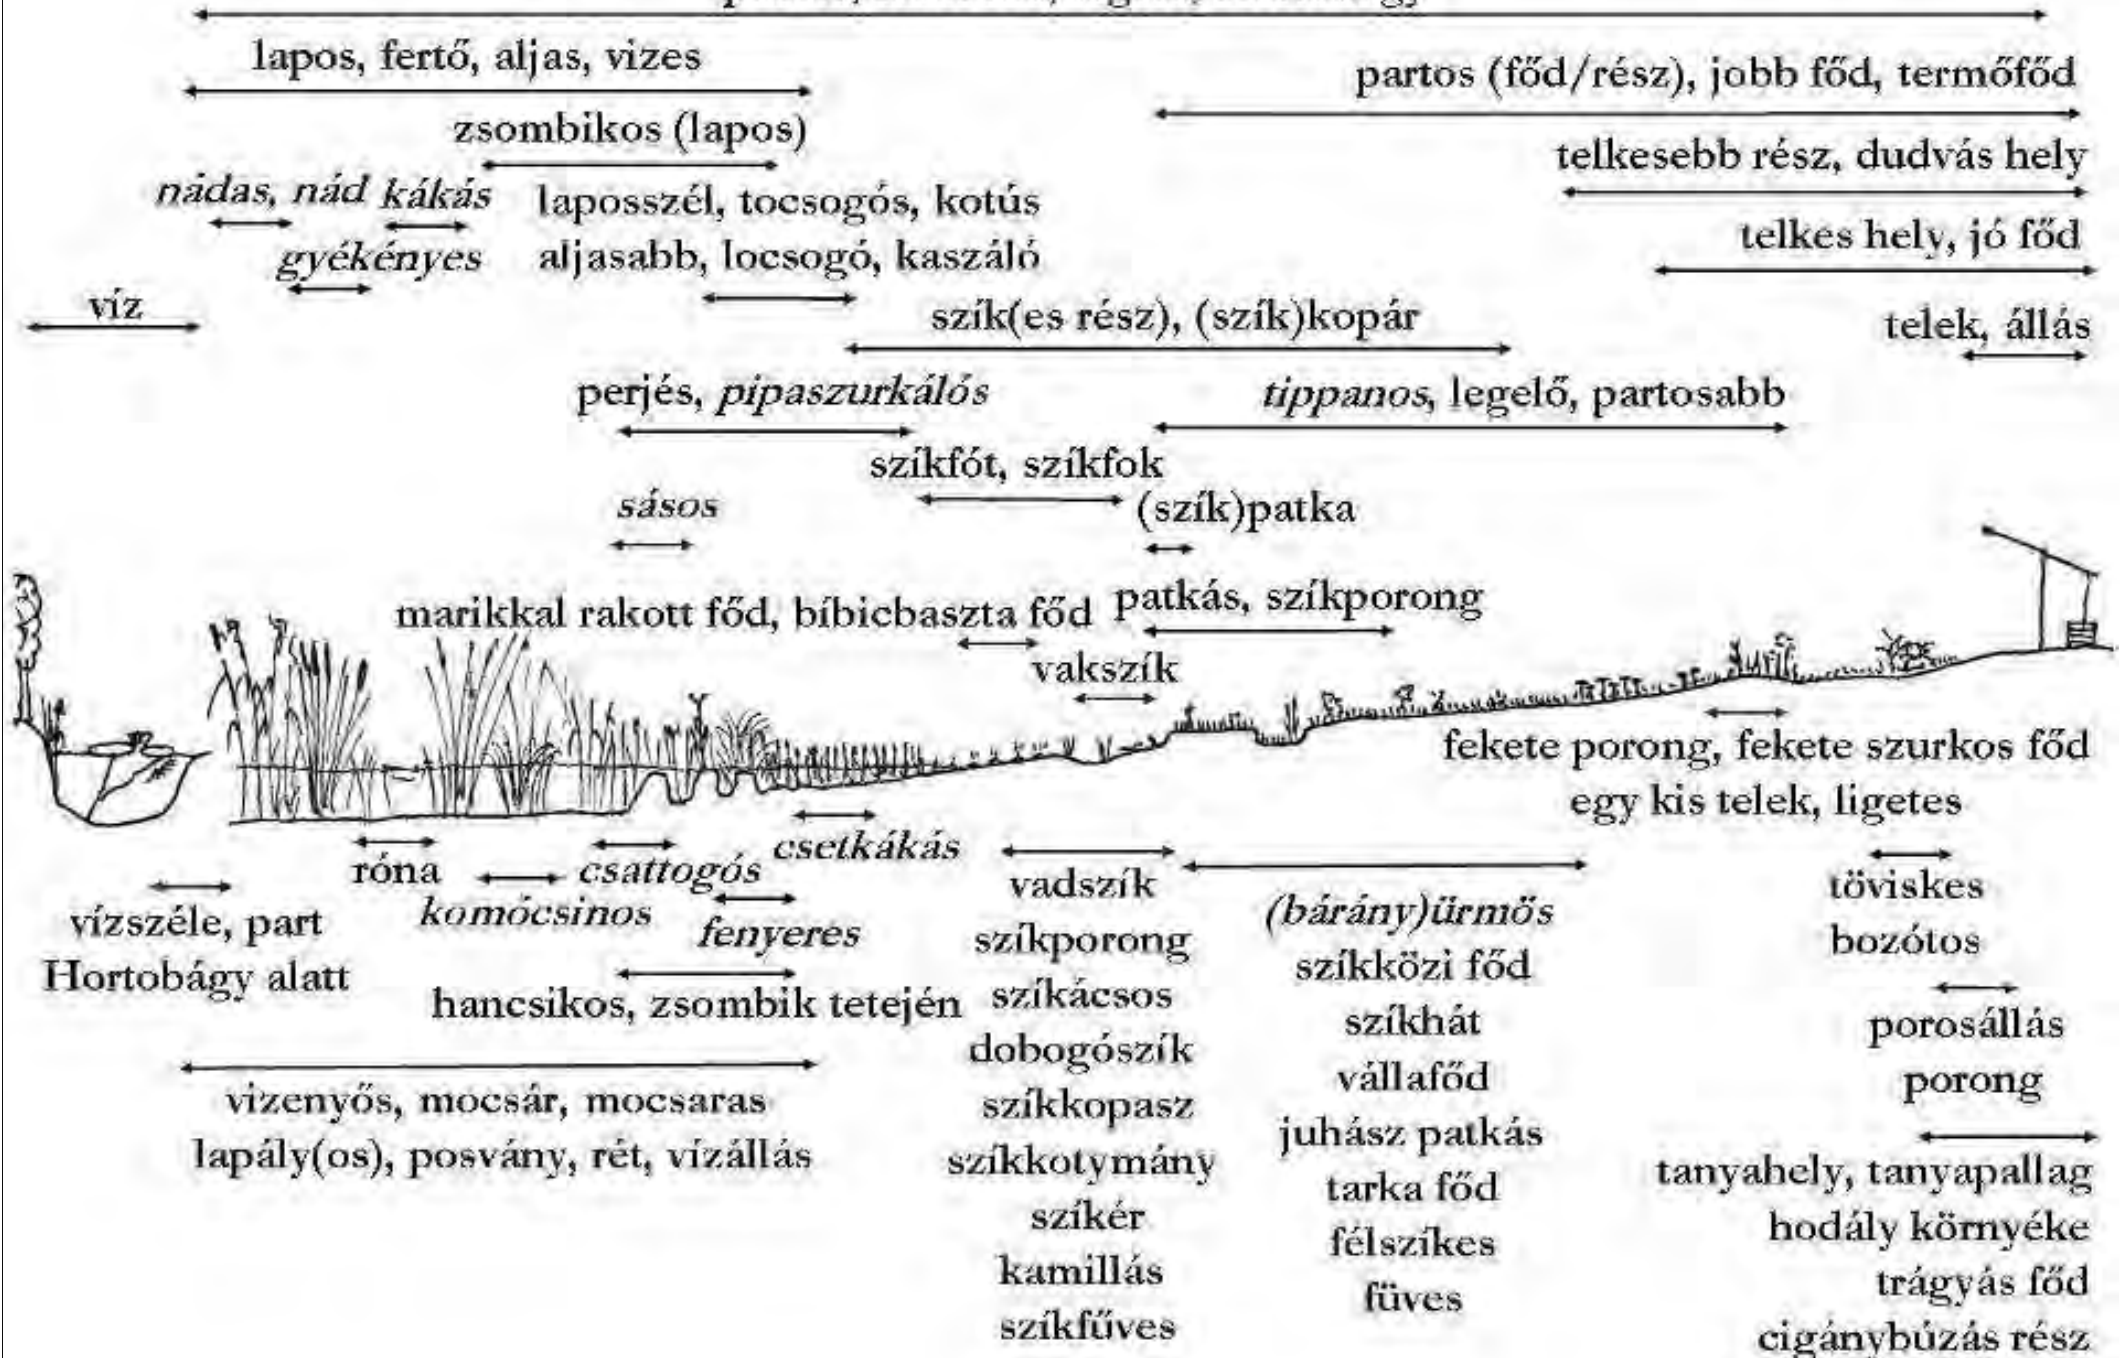 lapos, fertő, aljas, vizes
partos (főd/rész), jobb főd, termőfőd
zsombikos (lapos)
telkesebb rész, dudvás hely
nádas, nád kákás
laposszél, tocsogós, kotús
telkes hely, jó főd
gyékényes
aljasabb, locsogó, kaszáló
víz
szík(es rész), (szík)kopár
telek, állás
perjés, pipaszurkálós
tippanos, legelő, partosabb
szíkfót, szíkfok
sásos
(szík)patka
marikkal rakott főd, bíbicbaszta főd
patkás, szíkporong
vakszík
fekete porong, fekete szurkos főd
egy kis telek, ligetes
róna
csattogós
csetkákás
komócsinos
fenyeres
vízszéle, part
Hortobágy alatt
hancsikos, zsombik tetején
vizenyős, mocsár, mocsaras
lapály(os), posvány, rét, vízállás
vadszík
szíkporong
szíkácsos
dobogószík
szíkkopasz
szíkkotymány
szíkér
kamillás
szíkfűves
(bárány)ürmös
szíkközi főd
szíkhát
vállafőd
juhász patkás
tarka főd
félszíkes
füves
töviskes
bozótos
porosállás
porong
tanyahely, tanyapallag
hodály környéke
trágyás főd
cigánybúzás rész